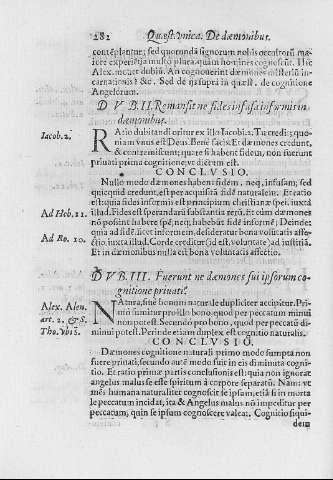 282 Quæst. vnica. De dæmonibus.
contēplantur; sed quorundā signorum nobis occultorū ma-
iore experiētia multò plura quàm homines cognoscūt. Hîc
Alex. mouet dubiū. An cognouerint dæmones mysteriū in-
carnationis? &c. Sed de ijs supra in quæst. de cognitione
Angelorum.
D V B. II. Remansit ne fides infusa informis in
dæmonibus.
Iacob. 2.
RAtio dubitandi oritur ex illo Iacob. 2. Tu credis; quo-
niam vnus est Deus. Benè facis: Et dæmones credunt,
& contremiscunt; quare si habent fidem, non fuerunt
priuati prima cognitione, vt dictum est.
CONCLVSIO.
Nullo modo dæmones habent fidem, neq; infusam; sed
quicquid credunt, est per acquisitā fidē naturalem. Et ratio
est: quia fides informis est principium christianæ spei, iuxtà
Ad Heb. 11.
illud. Fides est sperandarū substantia rerū. Et cùm dæmones
nō possint habere spē, neq; habēbūt fidē informē; Deinde;
quia ad fidē, licet esset informem, desideratur bona volūtatis affe-
Ad Ro. 10.
ctio, iuxta illud. Corde creditur (id est, voluntate) ad iustitiā.
Et in dæmonibus nulla est bona volūtatis affectio.
D V B. III. Fuerunt ne dæmones sui ipsorum co-
gnitione priuati?
Alex. Alen.
art. 2. & S.
Tho. vbi s.
NAtura, siue bonum naturale dupliciter accipitur. Pri-
mò sumitur pro illo bono, quod per peccatum minui
non potest. Secundò pro bono, quod per peccatū di-
minui potest. Perinde etiam duplex est cognitio naturalis.
CONCLVSIO.
Dæmones cognitione naturali primo modo sumpta non
fuere priuati, secundo autē modo fuit in eis diminuta cognit-
tio. Et ratio primæ partis conclusionis est: quia non ignorat
angelus malus se esse spiritum à corpore separatū. Nam: vt
mēs humana naturaliter cognoscit se ipsam, etiā si in morta
le peccatum incidat, ita & Angelus malus nō impeditur per
peccatum, quin se ipsum cognoscere valeat. Cognitio siqui-
dem